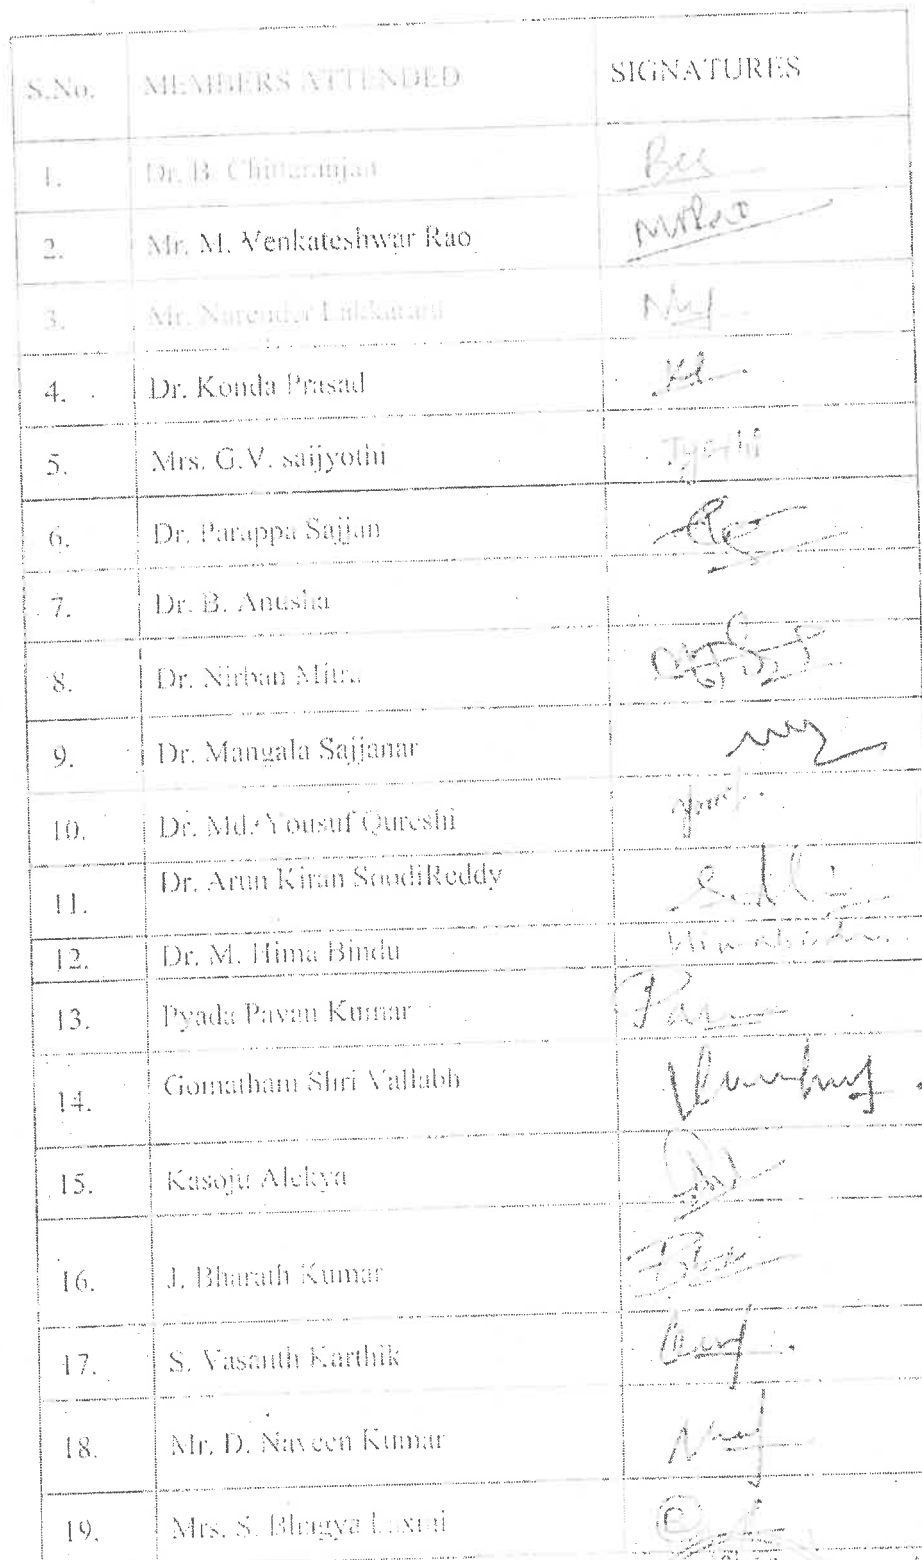 S.No. MEMBERS ATTENDED SIGNATURES
1. Dr. B. Chittaranjan
2. Mr. M. Venkateshwar Rao MVRao
3. Mr. Narender Lakkaraju
4. Dr. Konda Prasad
5. Mrs. G.V. saijyothi Jyothi
6. Dr. Parappa Sajjan
7. Dr. B. Anusha
8. Dr. Nirban Mitra
9. Dr. Mangala Sajjanar
10. Dr. Md. Yousuf Qureshi
11. Dr. Arun Kiran SoudiReddy
12. Dr. M. Hima Bindu Himabindu
13. Pyada Pavan Kumar
14. Gomatham Shri Vallabh
15. Kasoju Alekya
16. J. Bharath Kumar
17. S. Vasanth Karthik
18. Mr. D. Naveen Kumar
19. Mrs. S. Bhagya Laxmi